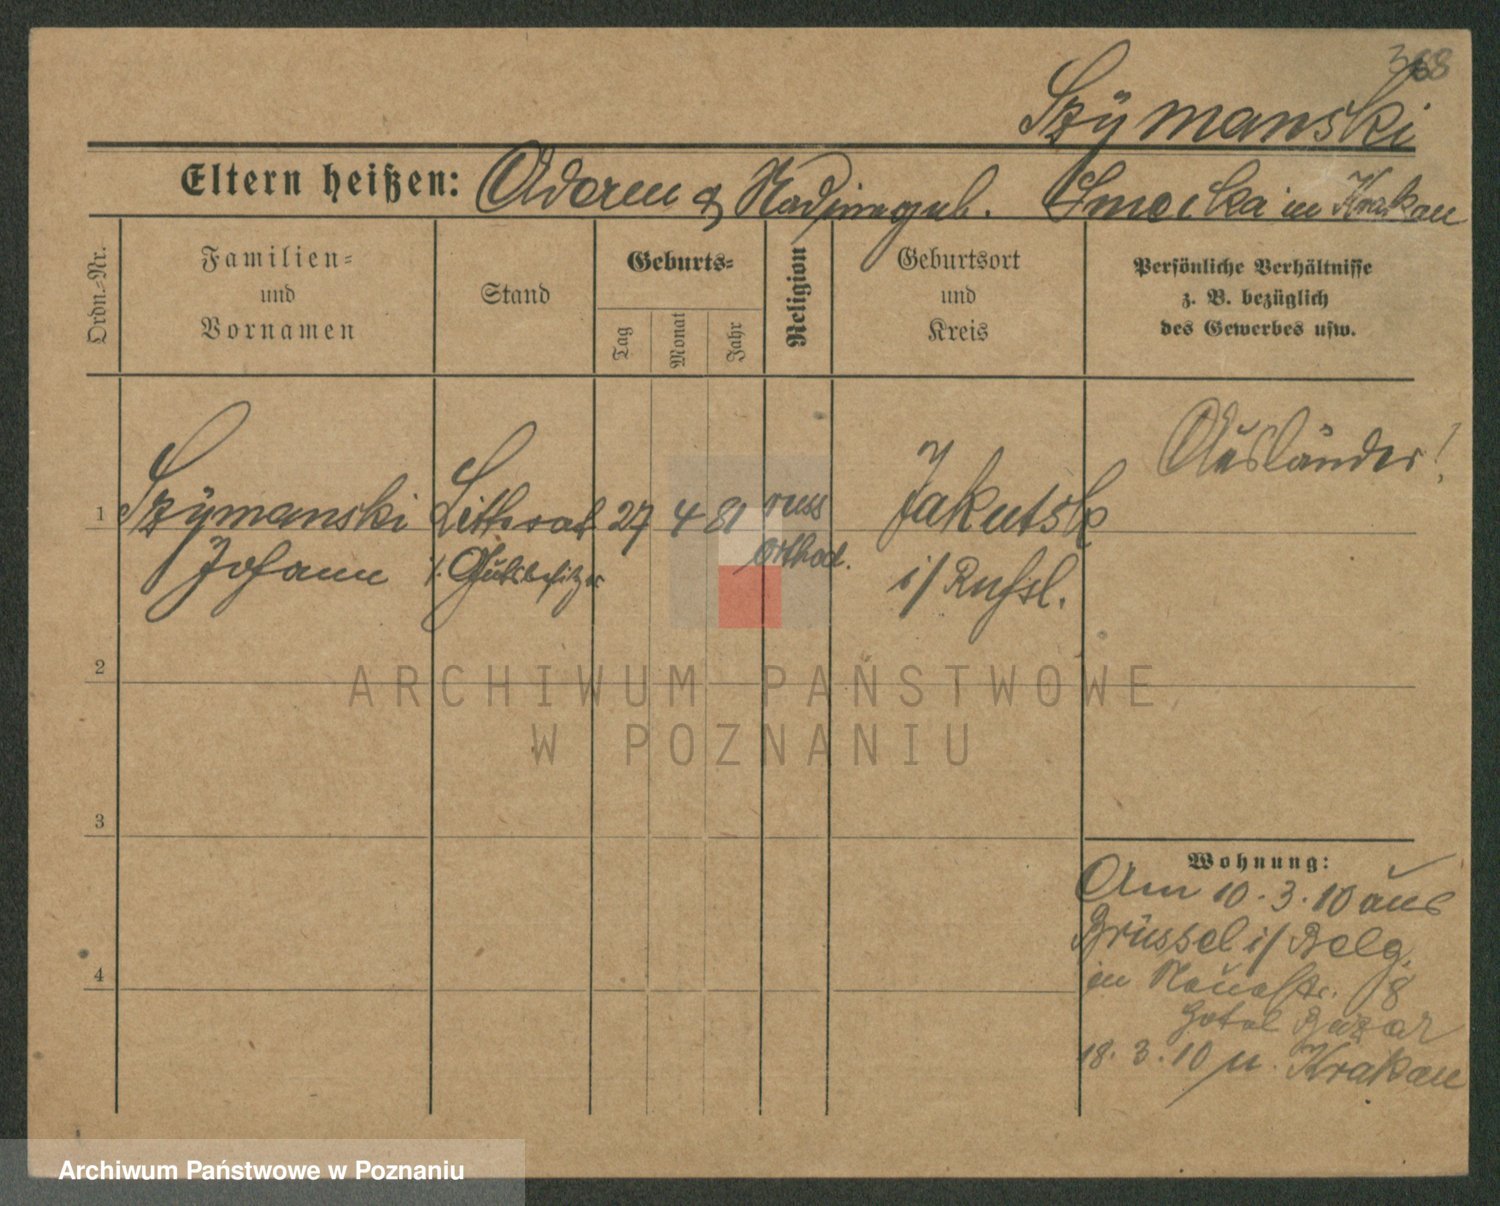 368
Szÿmanski
Eltern heißen: & geb. in Krakau
Ordn.-Nr.
Familien-
und
Vornamen
Stand
Geburts-
Tag
Monat
Jahr
Religion
Geburtsort
und
Kreis
Persönliche Verhältnisse
z. B. bezüglich
des Gewerbes usw.
Ausländer!
1 Szÿmanski Litterat 27 4 81 russ Jakutsk
Johann Gutsbesitzer orthod. i/ Rußl.
2
ARCHIWUM PAŃSTWOWE
W POZNANIU
3
Wohnung:
Am 10.3.10 aus
Brüssel i/ Belg.
in Neuestr. 8
Hotel Bazar
4
18.3.10 n. Krakau
Archiwum Państwowe w Poznaniu